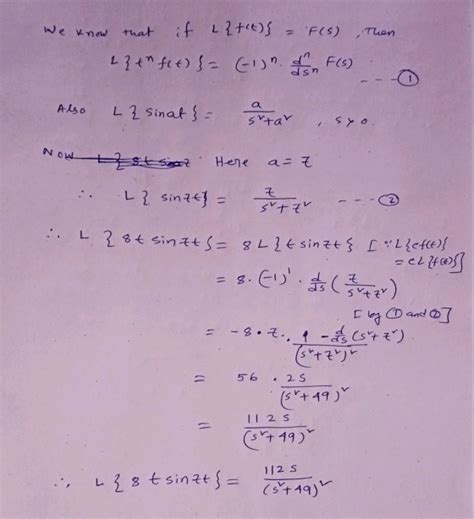 We know that if L{f(t)} = F(s), Then
L{tⁿ f(t)} = (-1)ⁿ. dⁿ/dsⁿ F(s) --- ①
Also L{sinat} = a/(s²+a²) , s>0.
Now Here a = 7
∴ L{sin7t} = 7/(s²+7²) --- ②
∴ L{8t sin7t} = 8L{t sin7t} [∵L{cf(t)}
= cL{f(t)}]
= 8.(-1)¹. d/ds (7/(s²+7²))
[by ① and ②]
= -8.7. -d/ds(s²+7²)/(s²+7²)²
= 56 . 2s/(s²+49)²
= 112s/(s²+49)²
∴ L{8t sin7t} = 112s/(s²+49)²